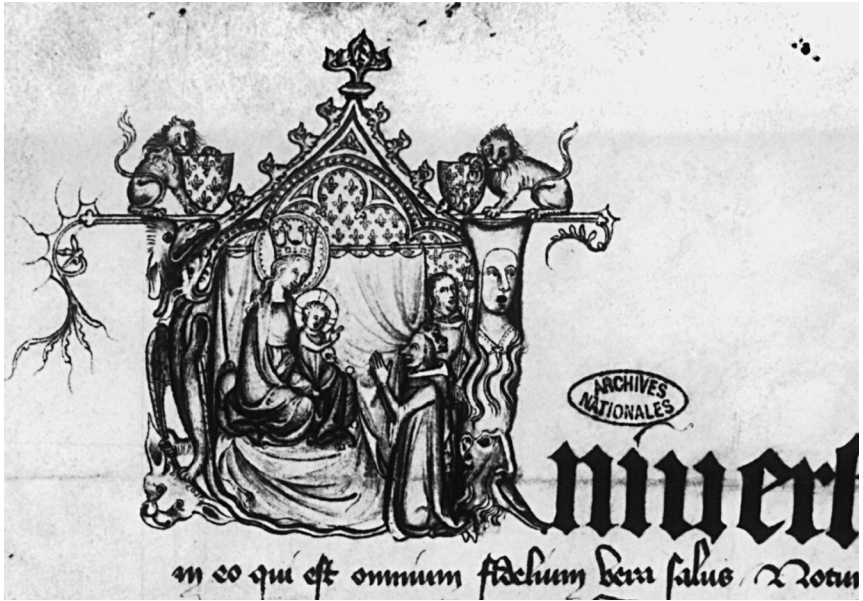 ARCHIVES
NATIONALES
Univers
in eo qui est omnium fidelium vera salus Notu